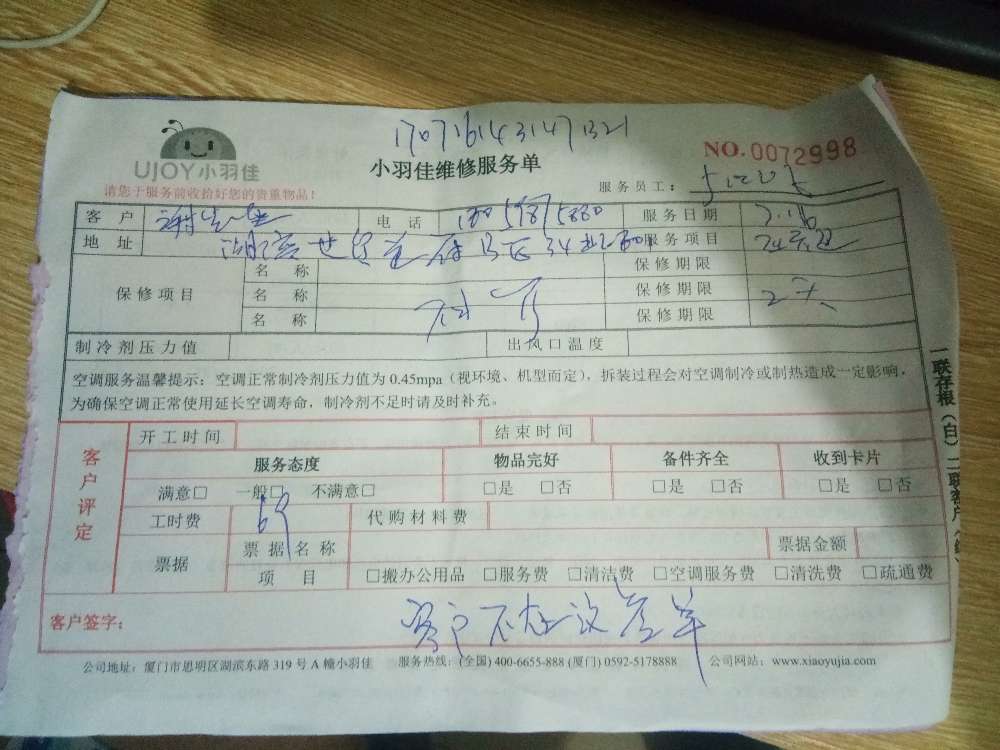 170716143147321
UJOY小羽佳
小羽佳维修服务单
NO.0072998
请您于服务前收拾好您的贵重物品！
服务员工：
客 户 谢先生 电 话 服务日期 7.16
地 址 服务项目
保修项目 名 称 保修期限
名 称 保修期限 2天
名 称 保修期限
制冷剂压力值 出风口温度
空调服务温馨提示：空调正常制冷剂压力值为 0.45mpa（视环境、机型而定），拆装过程会对空调制冷或制热造成一定影响，
为确保空调正常使用延长空调寿命，制冷剂不足时请及时补充。
客户评定
开工时间 结束时间
服务态度 物品完好 备件齐全 收到卡片
满意□ 一般□ 不满意□ □是 □否 □是 □否 □是 □否
工时费 69 代购材料费
票据 票据名称 票据金额
项 目 □搬办公用品 □服务费 □清洁费 □空调服务费 □清洗费 □疏通费
客户签字： 客户不在没签单
公司地址：厦门市思明区湖滨东路 319 号 A 幢小羽佳 服务热线：(全国) 400-6655-888 (厦门) 0592-5178888 公司网站：www.xiaoyujia.com
一联存根（白）二联客户（